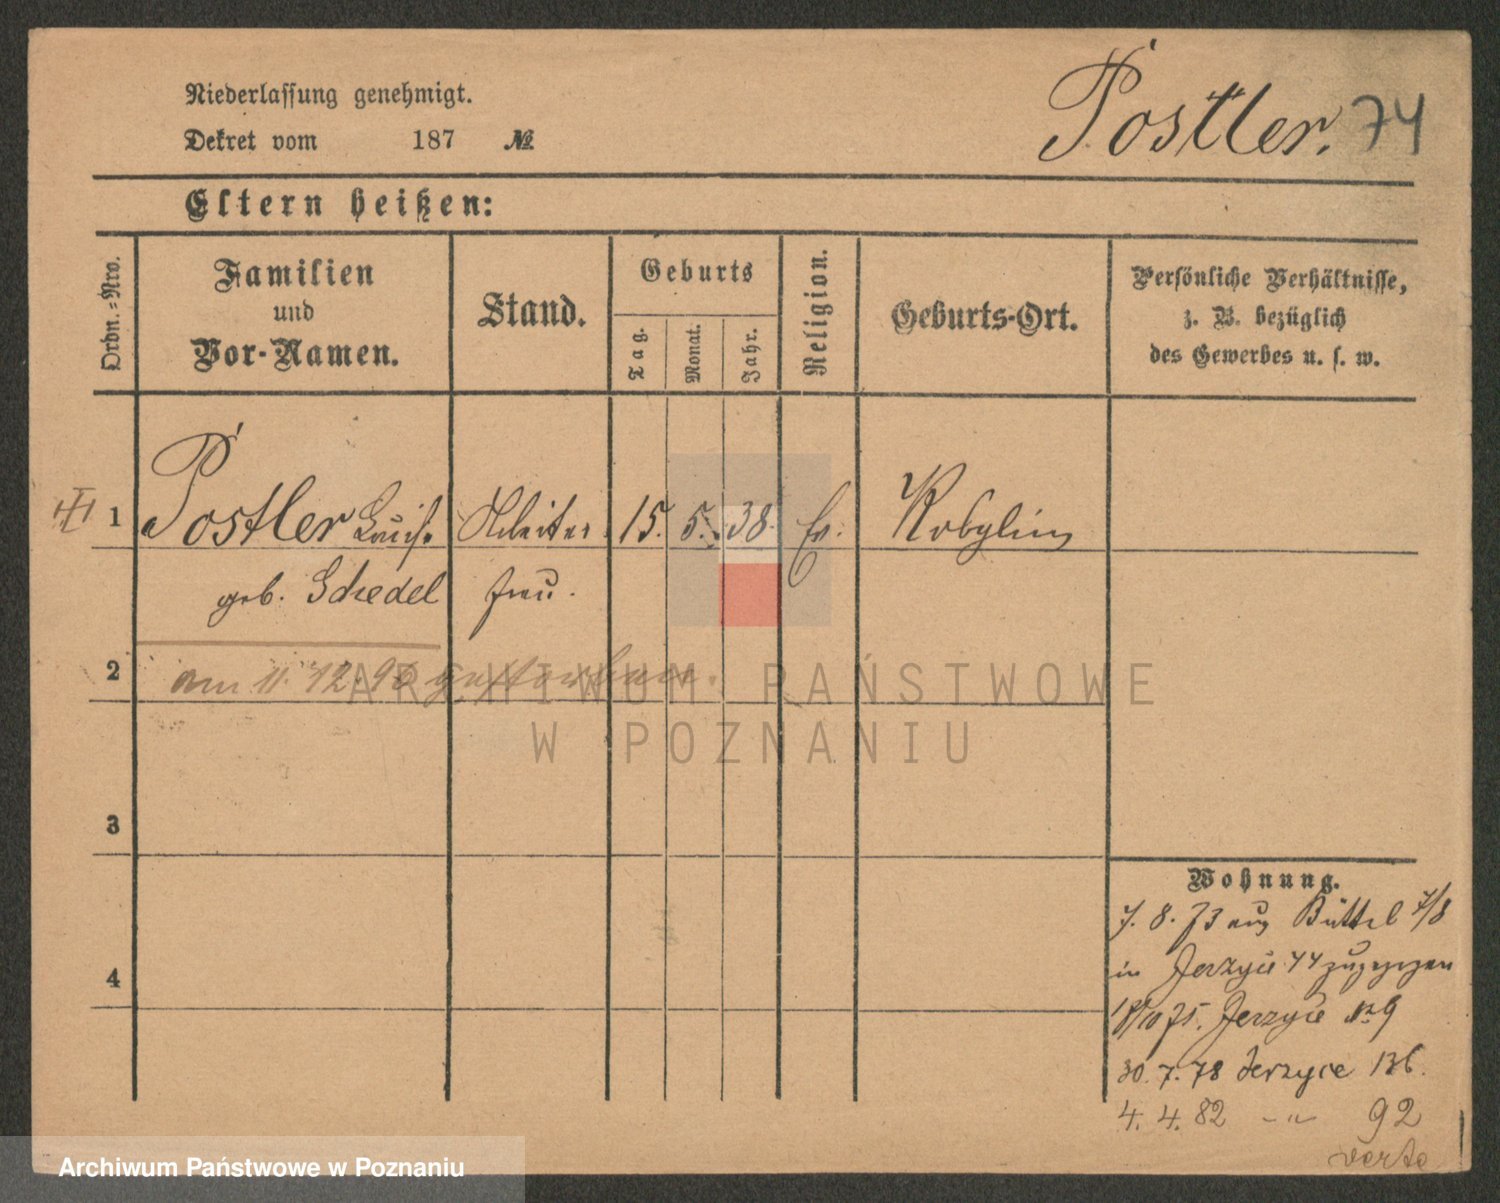 Niederlassung genehmigt.
Dekret vom 187 №
Postler. 74
Eltern heißen:
Ordn.=Nro.
Familien
und
Vor-Namen.
Stand.
Geburts
Tag.
Monat.
Jahr.
Religion.
Geburts-Ort.
Persönliche Verhältnisse,
z. B. bezüglich
des Gewerbes u. s. w.
1 Postler Louise Arbeiter 15. 5. 38. Ev. Kobylin
geb. Schedel frau.
2 am 11. 12. 90 gestorben.
3
4
Wohnung.
7. 8. 73 aus Büttel 7/8
in Jerzyce 44 zugezogen
75. Jerzyce № 9
30. 7. 78 Jerzyce 136.
4. 4. 82 -"- 92
verte
ARCHIWUM PAŃSTWOWE
W POZNANIU
Archiwum Państwowe w Poznaniu